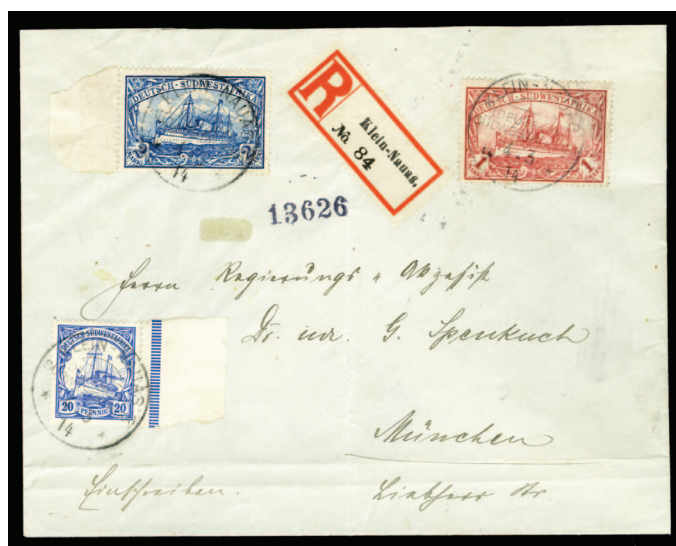 DEUTSCH-SÜDWESTAFRIKA
2
14
R
Klein-Nauas.
No 84
DEUTSCH-SÜDWESTAFRIKA
1
14
13626
Herrn Regierungs
Dr. G. Spenkuch
DEUTSCH-SÜDWESTAFRIKA
20 PFENNIG 20
14
München
Einschreiben.
Str.